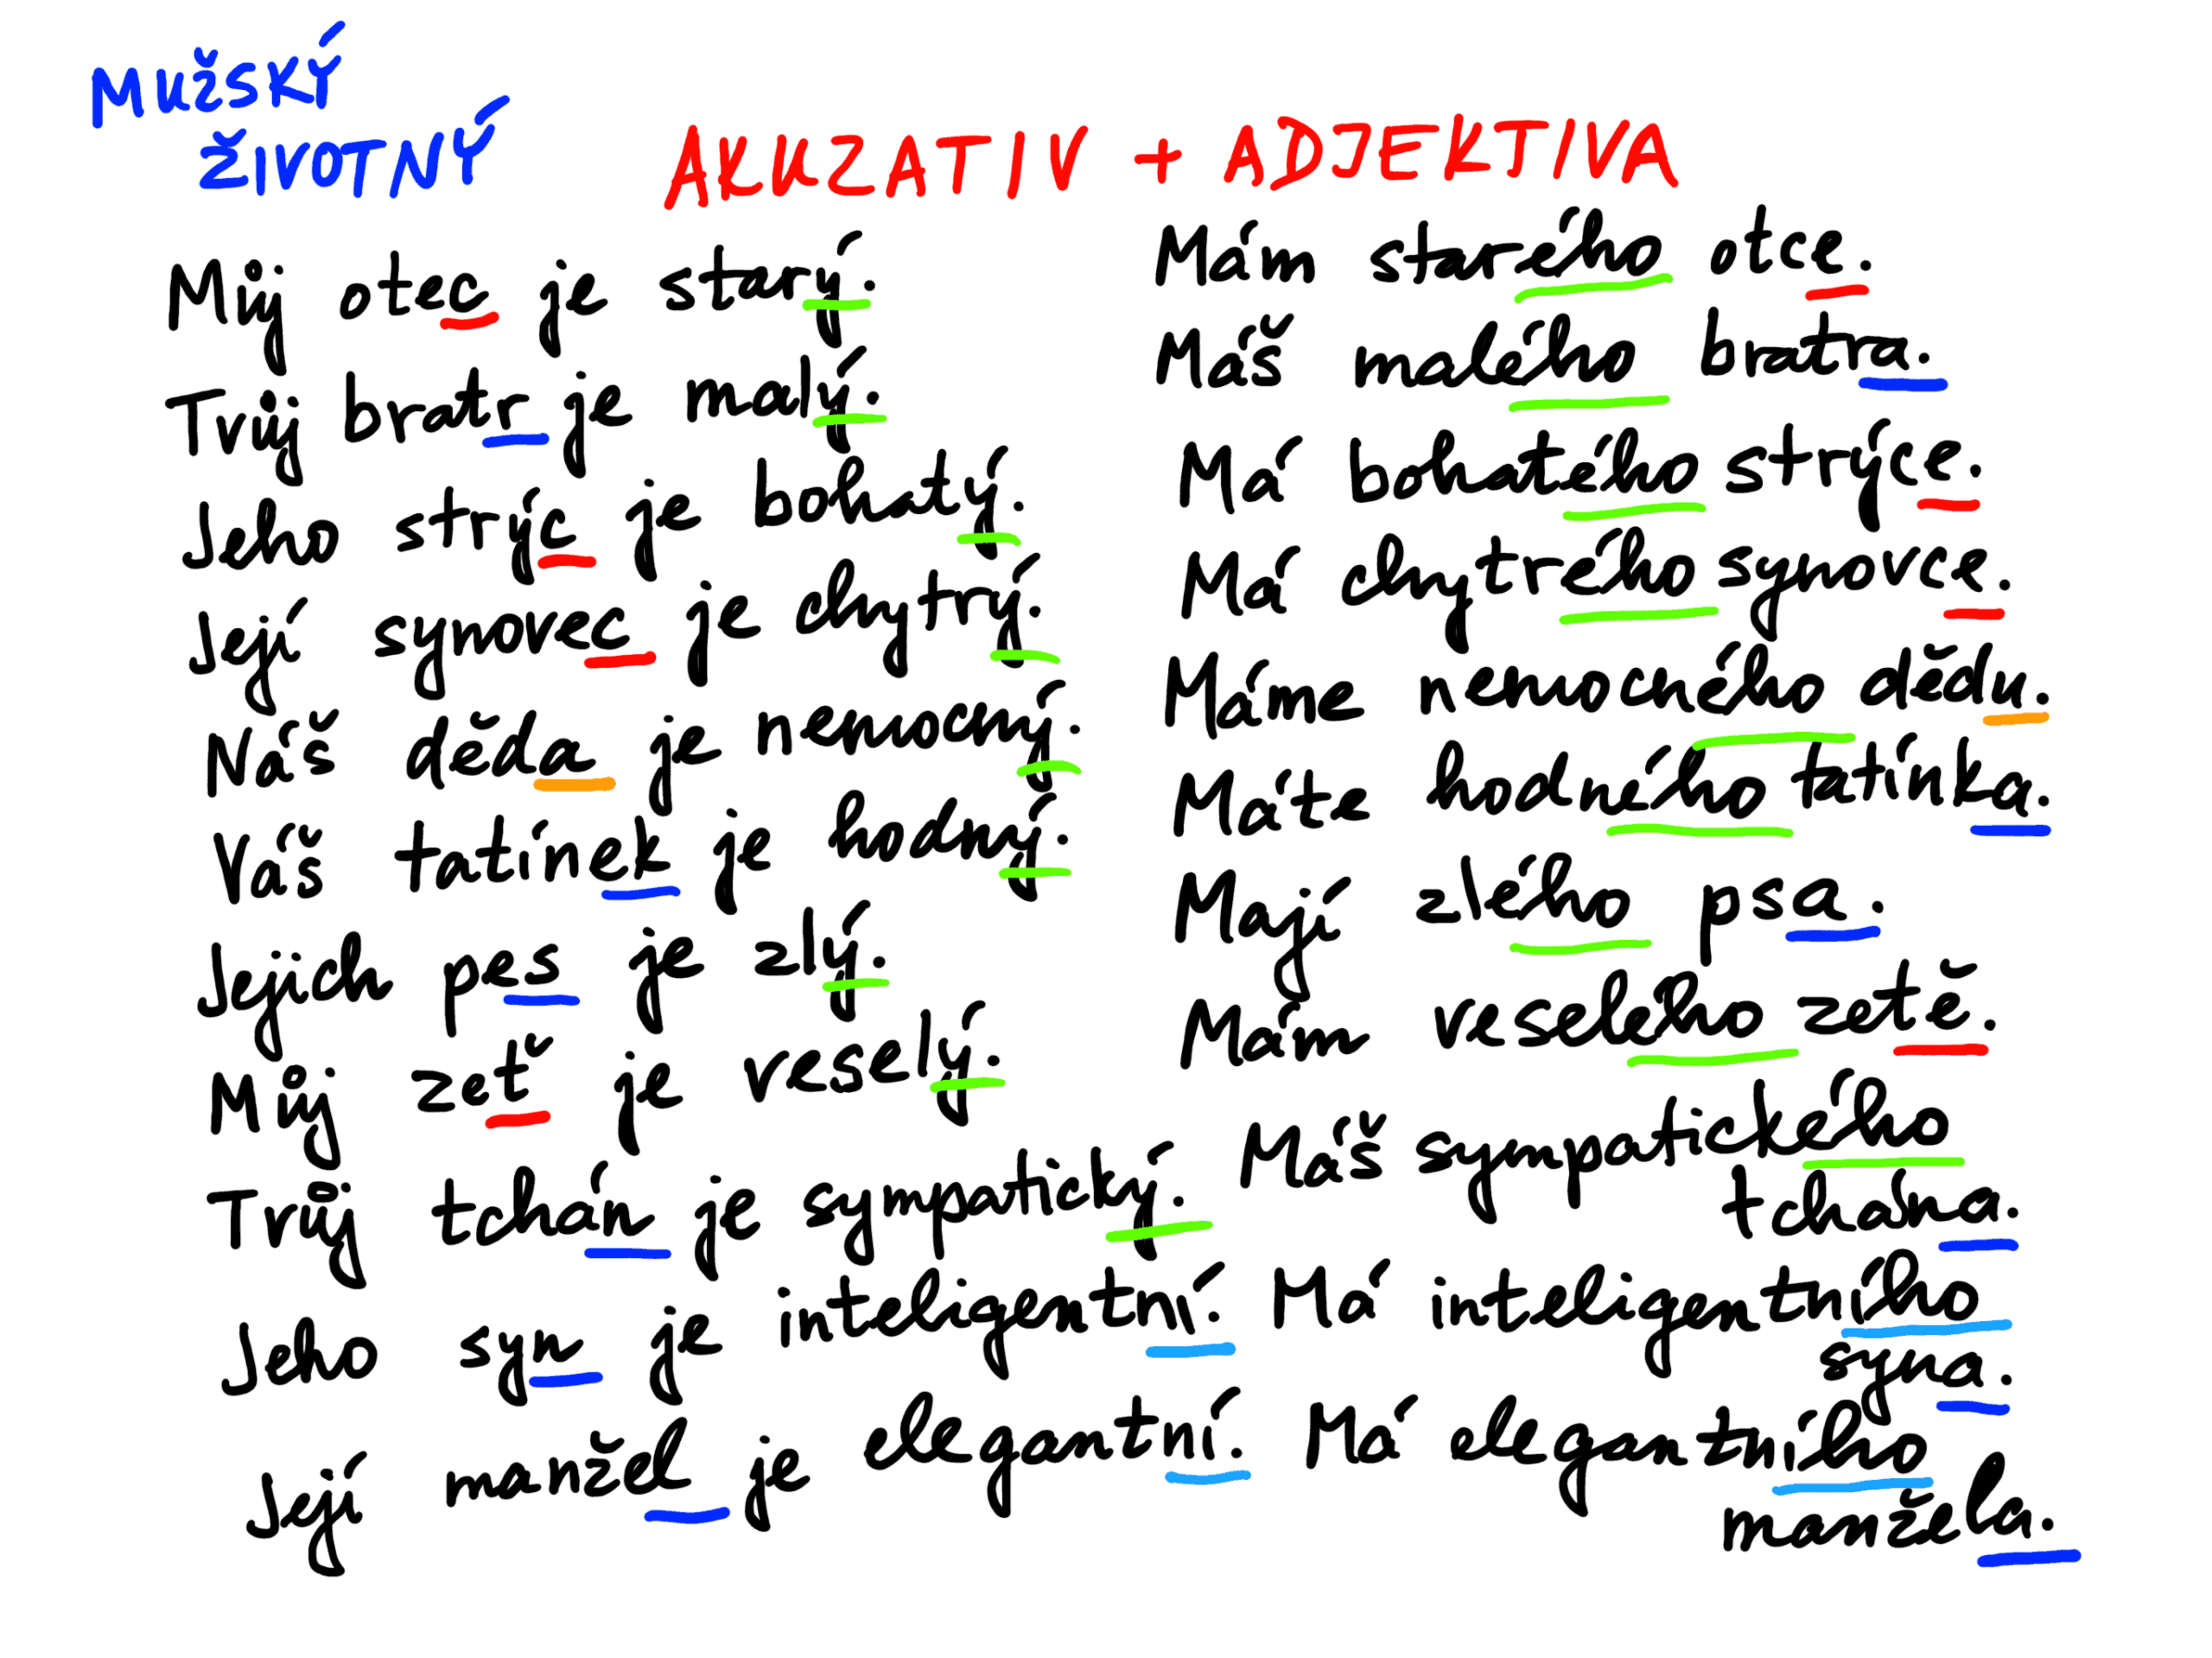 MUŽSKÝ
ŽIVOTNÝ
AKUZATIV + ADJEKTIVA
Můj otec je starý. Mám starého otce.
Tvůj bratr je malý. Máš malého bratra.
Jeho strýc je bohatý. Má bohatého strýce.
Její synovec je chytrý. Má chytrého synovce.
Náš děda je nemocný. Máme nemocného dědu.
Váš tatínek je hodný. Máte hodného tatínka.
Jejich pes je zlý. Mají zlého psa.
Můj zeť je veselý. Mám veselého zetě.
Tvůj tchán je sympatický. Máš sympatického
tchána.
Jeho syn je inteligentní. Má inteligentního
syna.
Její manžel je elegantní. Má elegantního
manžela.